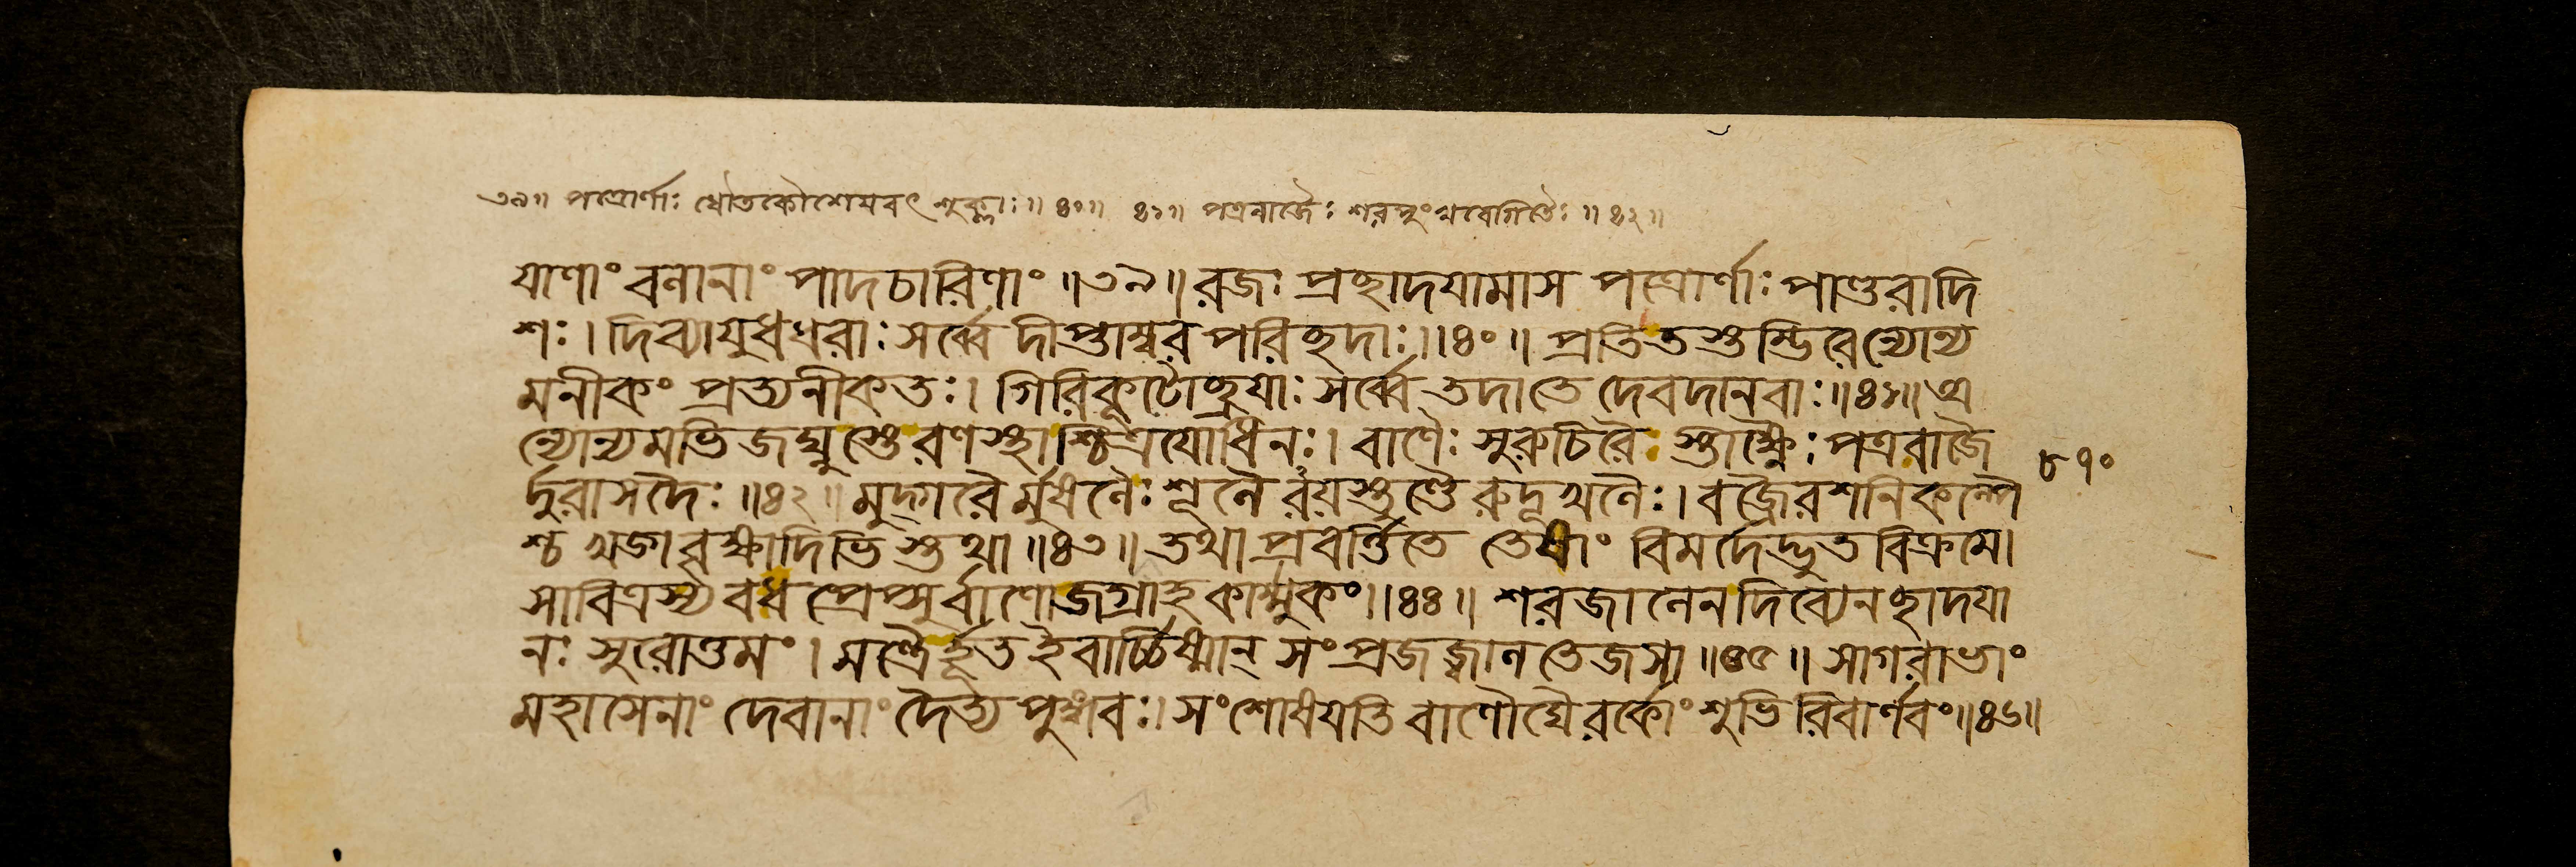 ৩৯॥ পত্রোর্ণাঃ ধৌতকৌশেয়বৎ শুক্লাঃ॥ ৪০॥ ৪১॥ পত্রবাজৈঃ শরপুংখবেগিতৈঃ॥ ৪২॥
যাণাং বনানাং পাদচারিণাং ॥৩৯॥ রজঃ প্রচ্ছাদযামাস পত্রোর্ণাঃ পাণ্ডুরাদি
শঃ। দিব্যাযুধধরাঃ সর্ব্বে দীপ্তাম্বর পরিচ্ছদাঃ॥৪০॥ প্রতিতস্তুম্ভিরেন্যোন্য
মনীকং প্রত্যনীকতঃ। গিরিকূটোচ্ছ্রযাঃ সর্ব্বে তদাতে দেবদানবাঃ॥৪১॥ অ
ন্যোন্যমভিজঘ্নুস্তেরণস্থাশ্চিত্রযোধিনঃ। বাণৈঃ সুরুচিরৈঃ স্তীক্ষ্ণৈঃ পত্রবাজৈ
র্দুরাসদৈঃ ॥৪২॥ মুদ্গরৈর্মুষলৈঃ শূলৈরযস্তুণ্ডৈরুদূখলৈঃ। বজ্রৈরশনিকল্পৈ
শ্চ খড়্গবৃক্ষাদিভিস্তথা॥৪৩॥ তথা প্রবর্ত্তিতে তেষাং বিমর্দেদ্ভুতবিক্রমে।
সাবিত্রস্যবধপ্রেপ্সুর্বাণোজগ্রাহকার্ম্মুকং॥৪৪॥ শরজালেনদিব্যেনচ্ছাদযা
নঃ সুরোত্তমং। মন্ত্রৈর্হূত ইবার্চ্চিষ্মান্ সংপ্রজজ্বালতেজসা॥৪৫॥ সাগরাভাং
মহাসেনাং দেবানাং দৈত্য পুঙ্গবঃ। সংশোষযতি বাণৌঘৈরর্কোংশুভিরিবার্ণবং॥৪৬॥
৮৭০